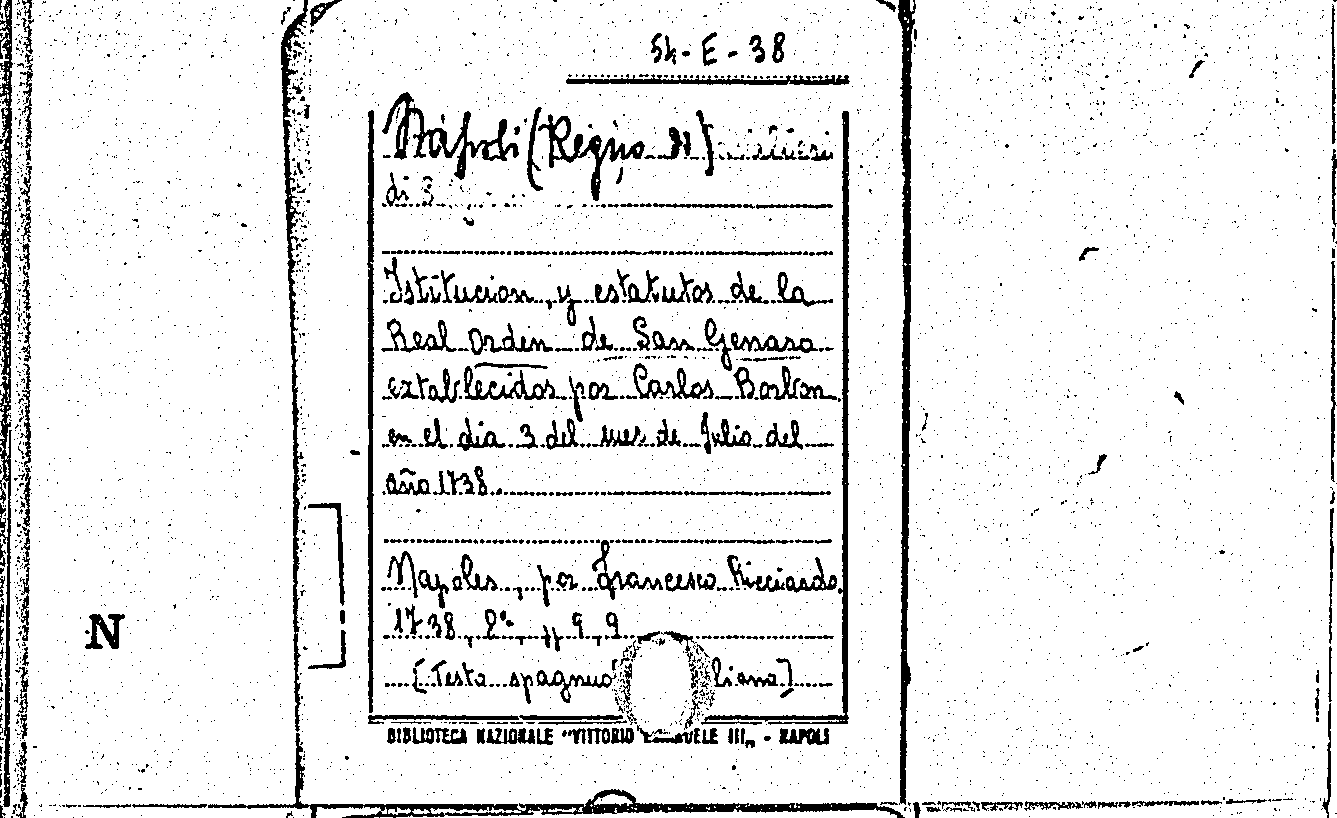 54-E-38
Napoli (Regno di)
di 3
Istitucion, y estatutos de la
Real Orden de San Genaro
establecidos por Carlos Borbon
en el dia 3 del mes de Julio del
año 1738.
Napoles, por Francesco Ricciardo.
1738, 8º, pp 9, 9
[Testo spagnuo liano]
N
BIBLIOTECA NAZIONALE "VITTORIO EMANUELE III„ - NAPOLI